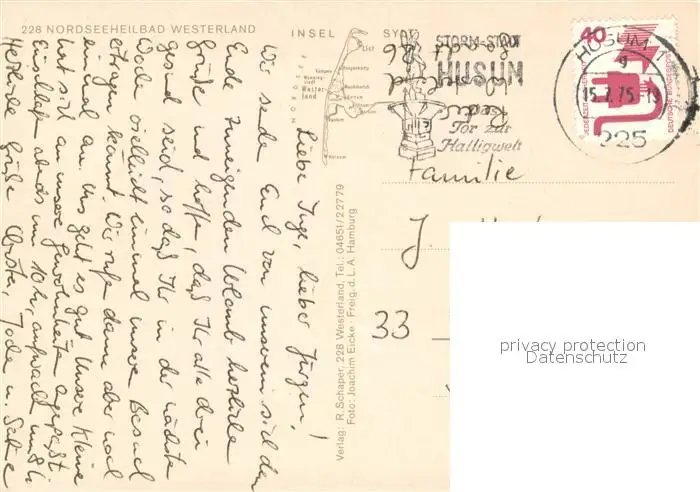 228 NORDSEEHEILBAD WESTERLAND INSEL SYLT
List
Kampen
Wester-
land
Keitum
Hörnum
STORM-STADT
HUSUM
Tor zur
Halligwelt
40
HUSUM 1
g
15.7.75.-19
225
Liebe Inge, lieber Jürgen!
Wir senden Euch von unserem sich dem
Ende zuneigenden Urlaub herzliche
Grüße und hoffen, daß Ihr alle drei
gesund seid, so daß Ihr in der nächsten
Woche vielleicht einmal unseren Besuch
ertragen könnt. Wir rufen dann aber noch
einmal an. Uns geht es gut. Unsere Kleine
hat sich an unsere Gewohnheiten angepaßt
Einschlafen abends um 10 h, aufwachen um 8 h.
Herzliche Grüße
Familie
J.
33
Verlag: R. Schaper, 228 Westerland, Tel.: 04651/22779
Foto: Joachim Eicke · Freig. d. L. A. Hamburg
privacy protection
Datenschutz